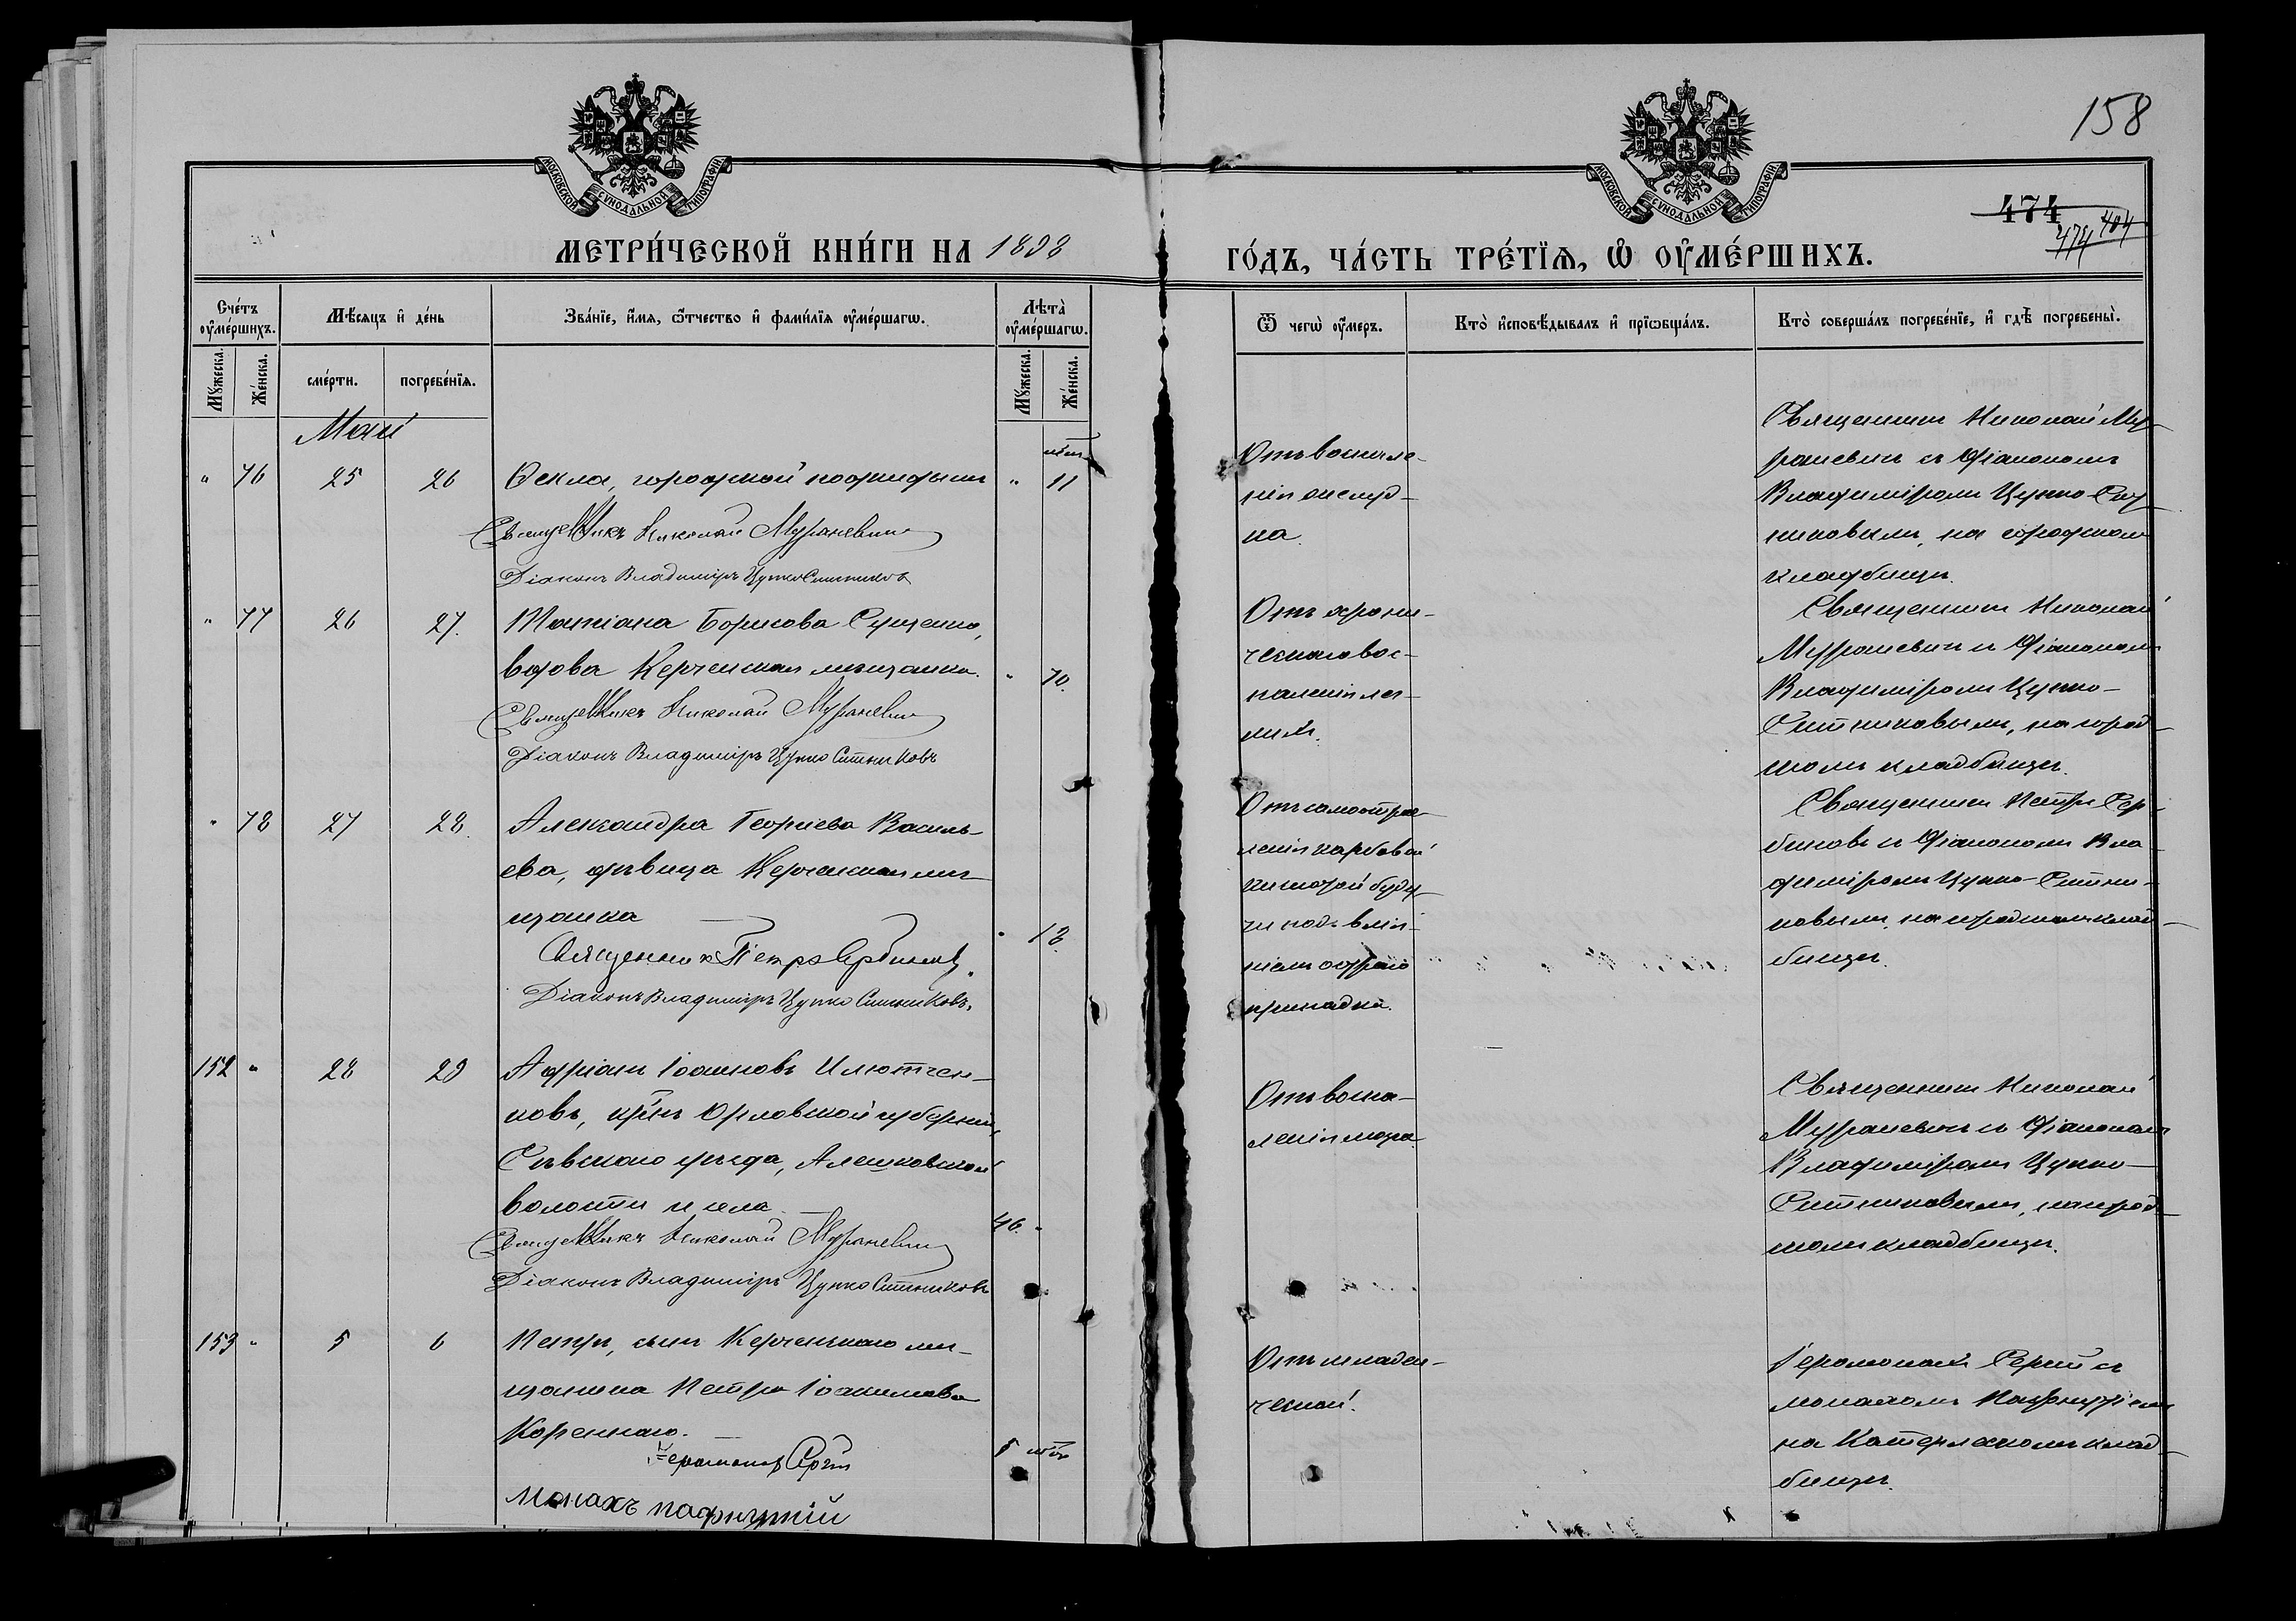 158
МОСКОВСКОЙ СѴНОДАЛЬНОЙ ТИПОГРАФІИ
МОСКОВСКОЙ СѴНОДАЛЬНОЙ ТИПОГРАФІИ
474
474 404
МЕТРИ́ЧЕСКОЙ КНИ́ГИ НА 1898
ГО́ДЪ, ЧА́СТЬ ТРЕ́ТІѦ, Ѡ҆ ОУ҆МЕ́РШИХЪ.
Сче́тъ оу҆ме́ршихъ.
Мѣ́сяцъ и҆ де́нь
Зва́нїе, и҆́мя, ѻ҆́тчество и҆ фами́лїя оу҆ме́ршагѡ.
Лѣта̀ оу҆ме́ршагѡ.
Ѿ чегѡ̀ оу҆́меръ.
Кто̀ и҆сповѣ́дывалъ и҆ прїѡбща́лъ.
Кто̀ соверша́лъ погребе́нїе, и҆ гдѣ̀ погребены̀.
Мꙋ́жеска.
Же́нска.
сме́рти.
погребе́нїѧ.
Мꙋ́жеска.
Же́нска.
Май
" 76 25 26 Ѳекла, городской подкидышъ " 11
Священникъ Николай Мураневич
Діаконъ Владиміръ Цупко Ситников
Отъ воспале-
нія желуд-
ка.
Священникъ Николай Му-
раневичъ съ діакономъ
Владиміромъ Цупко-Сит-
никовымъ, на городскомъ
кладбищѣ.
" 77 26 27. Татіана Борисова Сущенко,
вдова Керченская мѣщанка. " 70.
Священникъ Николай Мураневич
Діаконъ Владиміръ Цупко Ситниковъ
Отъ хрони-
ческаго вос-
паленія лег-
кихъ.
Священникъ Николай
Мураневичъ съ діакономъ
Владиміромъ Цупко-
Ситниковымъ, на город-
скомъ кладбищѣ.
" 78 27 28. Александра Георгіева Василь-
ева, дѣвица Керченская мѣ-
щанка
" 18
Священникъ Петръ Сербиновъ
Діаконъ Владиміръ Цупко Ситниковъ.
Отъ самоотрав-
ленія карболовой
кислотой буду-
чи подъ влія-
ніемъ остраго
припадка.
Священникъ Петръ Сер-
биновъ съ діакономъ Вла-
диміромъ Цупко-Ситни-
ковымъ, на городскомъ клад-
бищѣ.
152 " 28 29 Адріанъ Іоанновъ Илютчен-
ковъ, кр-нъ Орловской губерніи,
Сѣвскаго уѣзда, Алешковской
волости и села.
46. "
Священникъ Николай Мураневич
Діаконъ Владиміръ Цупко Ситниковъ
Отъ воспа-
ленія мозга.
Священникъ Николай
Мураневичъ съ діакономъ
Владиміромъ Цупко-
Ситниковымъ, на город-
скомъ кладбищѣ.
153 " 5 6 Петръ, сынъ Керченскаго мѣ-
щанина Петра Іоакимова
Кореннаго.
Іеромонахъ Сергій
Монахъ Пафнутій
Отъ младен-
ческой.
Іеромонахъ Сергій съ
монахомъ Пафнутіемъ
на Катерлезскомъ клад-
бищѣ.